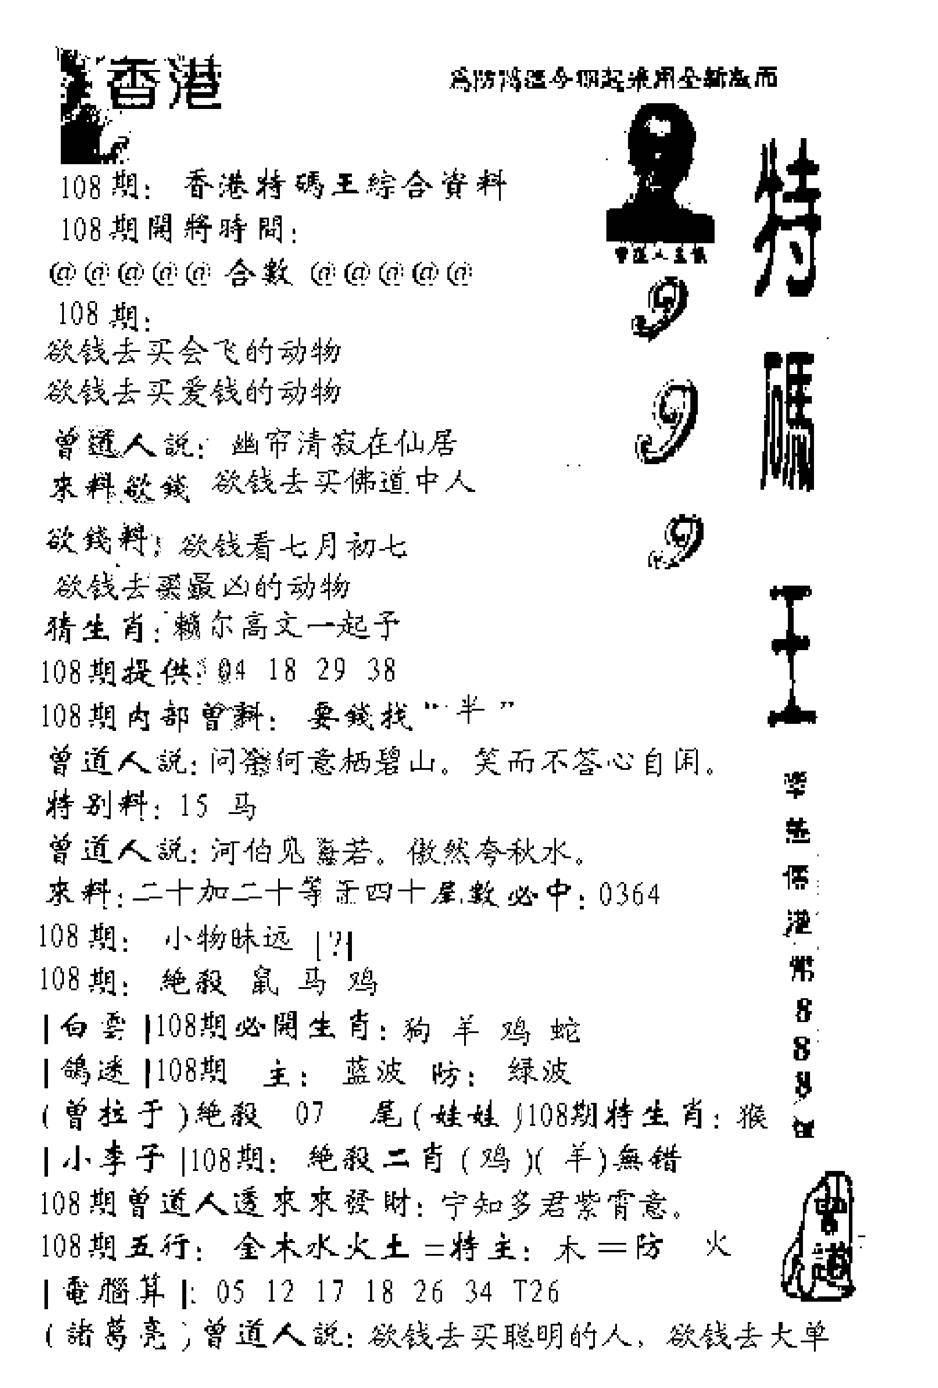 香港
為防假冒今期起采用全新版面
108期：香港特碼王綜合資料
108期開將時間：
@@@@@合數@@@@@
108期：
欲钱去买会飞的动物
欲钱去买爱钱的动物
曾道人說：幽帘清寂在仙居
來料欲錢 欲钱去买佛道中人
欲錢料：欲钱看七月初七
欲钱去买最凶的动物
猜生肖：籁尔高文一起予
108期提供：04 18 29 38
108期内部曾料：要錢找“半”
曾道人說：问爾何意栖碧山。笑而不答心自闲。
特别料：15 马
曾道人說：河伯见海若。傲然夸秋水。
來料：二十加二十等于四十尾數必中：0364
108期：小物昧远 |?|
108期：絶殺 鼠 马 鸡
|白雲|108期必開生肖：狗 羊 鸡 蛇
|鴿迷|108期 主：蓝波 防：绿波
(曾拉于)絶殺 07 尾(娃娃)108期特生肖：猴
|小李子|108期：絶殺二肖(鸡)(羊)無错
108期曾道人透來來發財：宁知多君紫霄意。
108期五行：金木水火土=特主：木=防 火
|電腦算|：05 12 17 18 26 34 T26
(諸葛亮)曾道人說：欲钱去买聪明的人，欲钱去大单
曾道人主俵
999
特碼王
港
888
曾道